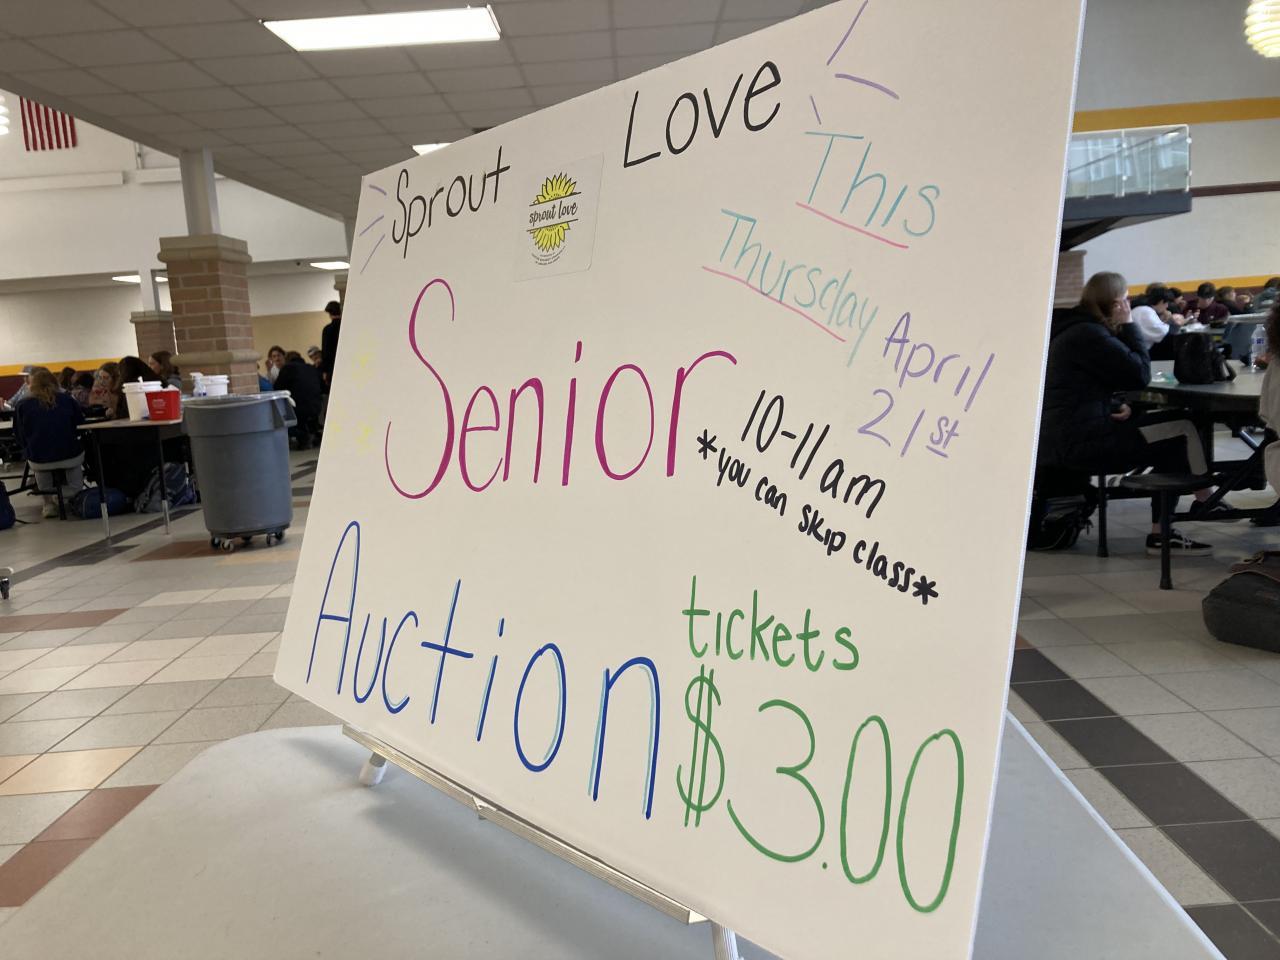 Sprout Love
sprout love
This
Thursday
April
21st
Senior
10-11 am
*you can skip class*
Auction
tickets
$3.00